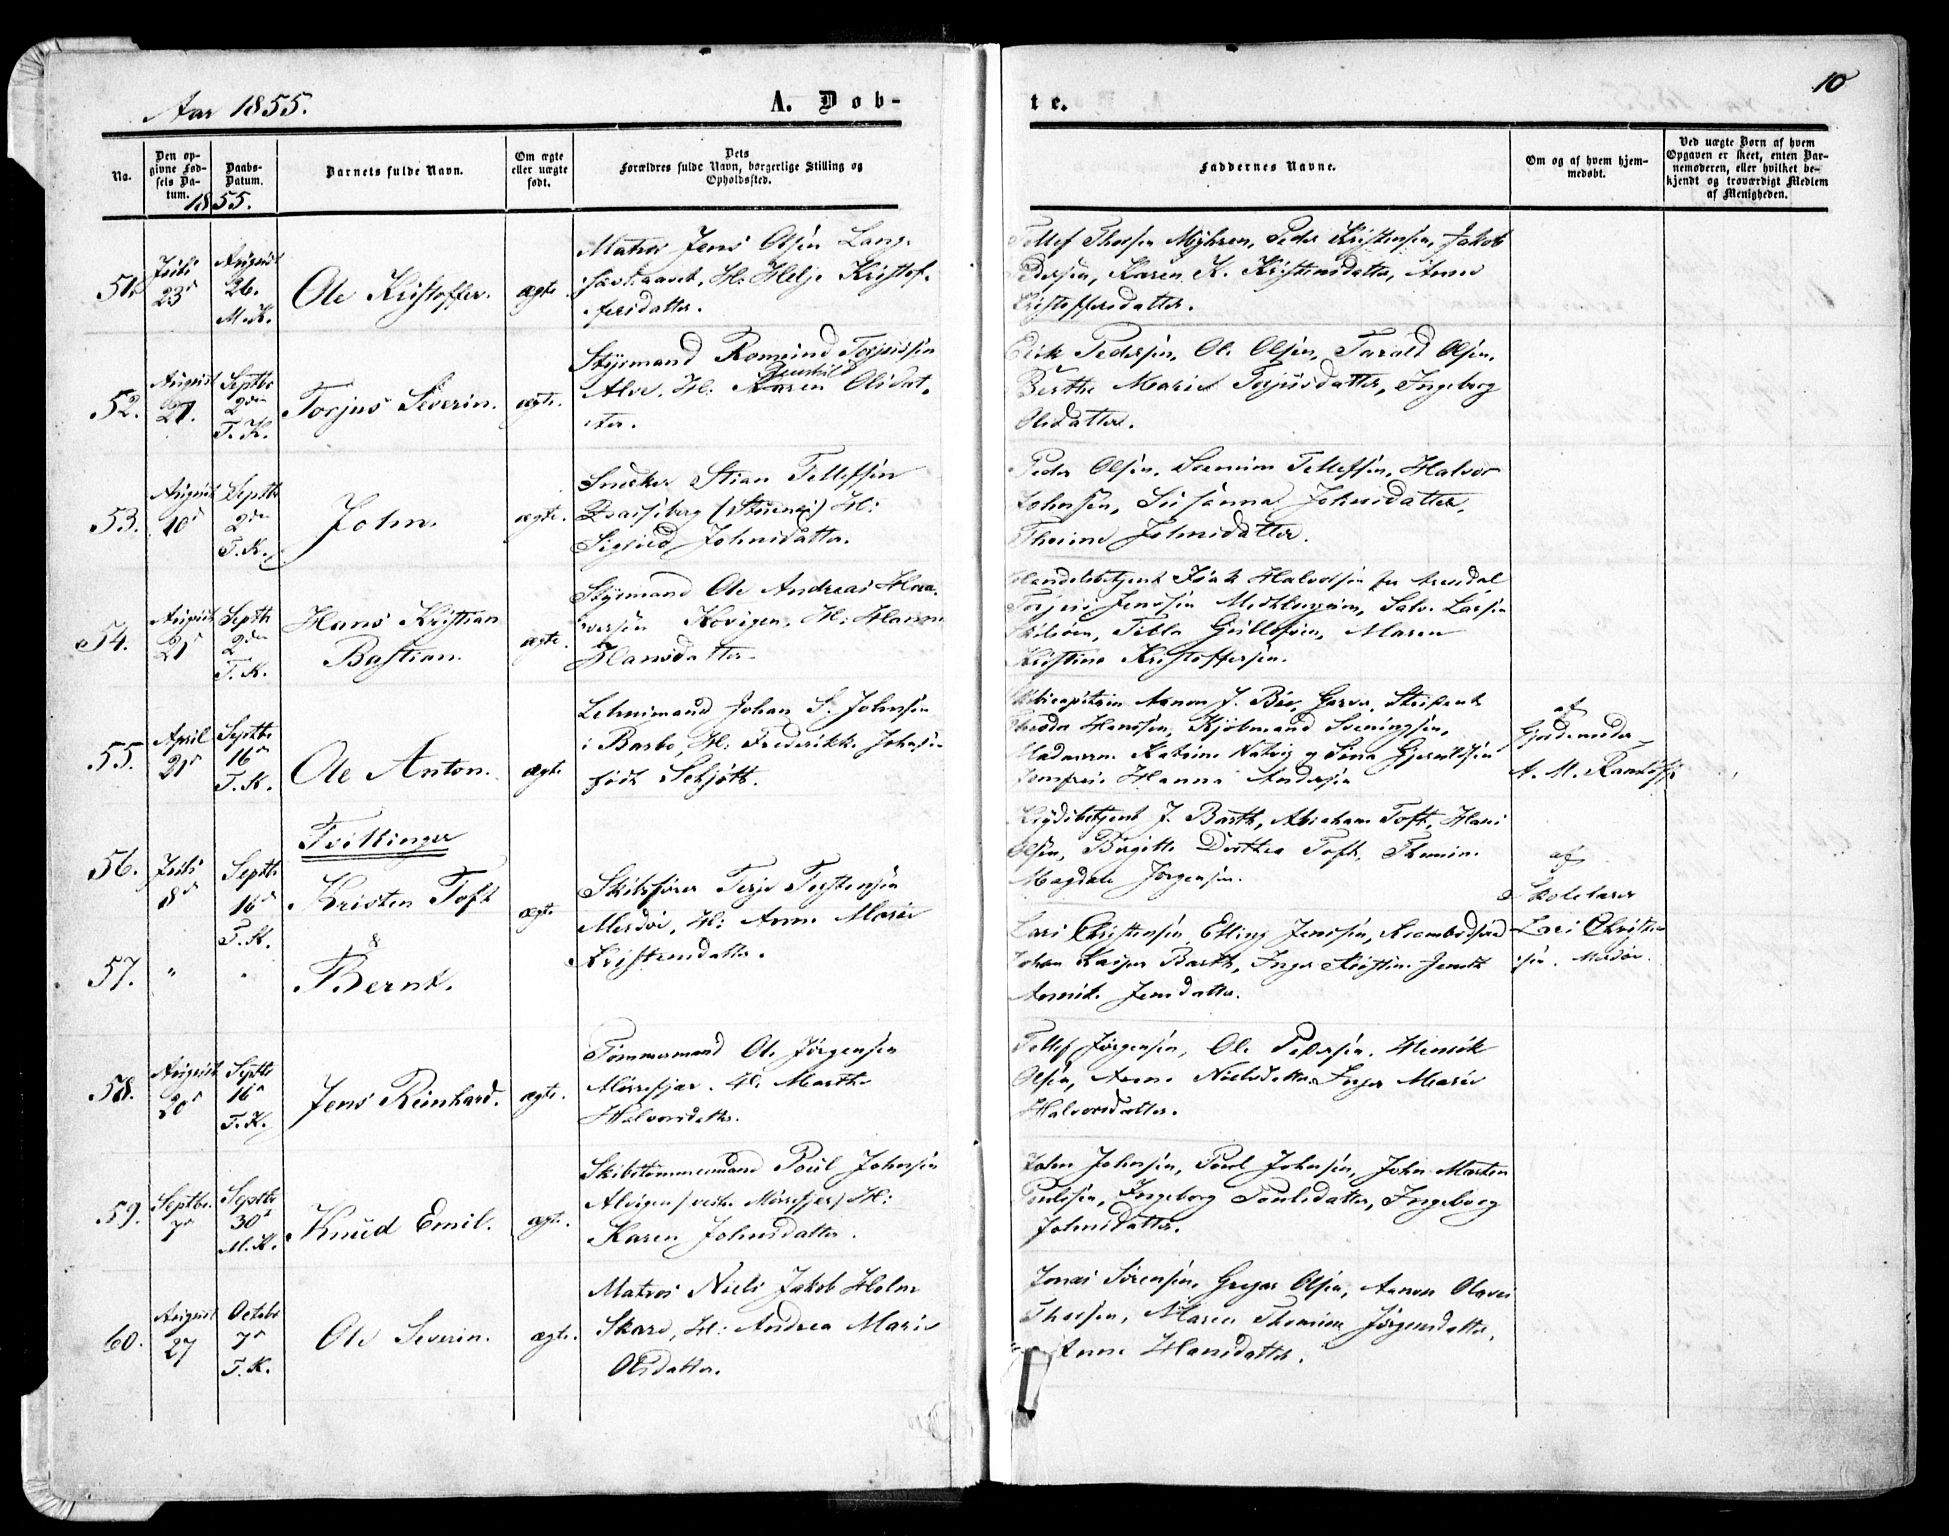 Aar 1855.
A. Døb-
te.
10
No.
Den op-
givne Fød-
sels Da-
tum.
Daabs-
Datum.
1855.
Barnets fulde Navn.
Om ægte
eller uægte
født.
Dets
Forældres fulde Navn, borgerlige Stilling og
Opholdssted.
Faddernes Navne.
Om og af hvem hjem-
medøbt.
Ved uægte Børn af hvem
Opgaven er skeet, enten Bar-
nemoderen, eller hvilket be-
kjendt og troværdigt Medlem
af Menigheden.
51.
Juli
23d
August
26.
M.K.
Ole Kristoffer.
ægte
Matros Jens Olsen Lang-
H: Helje Kristof-
fersdatter.
Tellef Thorsen Myhren, Peder Kristensen, Jakob
Pedersen, Karen K. Kristensdatter, Anne
Kristoffersdatter.
52.
August
27.
Septbr
2den
T.K.
Torjus Severin.
ægte.
Styrmand Romund Torjussen
Alve. H: Karen Olsdat-
ter.
Erik Pedersen, Ole Olsen, Tarald Olsen,
Berthe Marie Torjusdatter, Ingeborg
Olsdatter.
53.
August
10d
Septbr
2den
T.K.
John.
ægte.
Snedker Stian Tellefsen
H:
Sigrid Johnsdatter.
Peder Olsen, Tellefsen, Halvor
Johnsen, Susanna Johnsdatter,
Johnsdatter.
54.
August
21d
Septbr
2den
T.K.
Hans Kristian
Bastian.
ægte.
Styrmand Ole Andreas Haa-
versen Kovigen, H: Maren
Hansdatter.
Handelsbetjent Isak Halvorsen fra Arendal
Torjus Jensen Salve Larsen
Maren
Kristine Kristoffersen.
55.
April
21d
Septbr
16d
T.K.
Ole Anton.
ægte
Lehnsmand Johan S. Johnsen
i Barbo, H: Frederikke Johnsen
født Schjøtt.
Aanon J.
Hansen,
Madamerne Katrine Natvig og
Jomfrue Hanna Andersen
af
Gjordemoder
A. M.
Tvillinger
56.
Juli
8d
Septbr
16d
T.K.
Kristen Toft
&
ægte
Skibsfører Terje Terjesen
Merdø, H: Anne Marie
Kristensdatter.
J. Barth, Abraham Toft, Hans
Olsen, Birgitte Dorthea Toft,
Magdale Jørgensen.
af
Skolelærer
Lars Christen-
sen. Merdø.
57.
"
"
Bernt.
Lars Christensen, Elling Jensen,
Johan Kasper Barth, Inger Kristine
Jensdatter.
58.
August
20d
Septbr
16d
T.K.
Jens Reinhard.
ægte.
Tømmermand Ole Jørgensen
H: Marthe
Halvorsdatter.
Tellef Jørgensen, Ole Pedersen, Henrik
Olsen, Anne Nielsdatter, Inger Marie
Halvorsdatter.
59.
Septbr.
7d
Septbr
30d
M.K.
Knud Emil.
ægte.
Skibstømmermand Poul Johnsen
H:
Karen Johnsdatter.
John Johnsen, Poul Johnsen, John Morten
Poulsen, Ingeborg Poulsdatter, Ingeborg
Johnsdatter.
60.
August
27
Octobr
7d
T.K.
Ole Severin.
ægte.
Matros Niels Jakob Holm
Skare, H: Andrea Marie
Olsdatter.
Jonas Sørensen, Gregar Olsen, Aanon
Thorsen, Maren Thomine Jørgensdatter,
Anne Hansdatter.